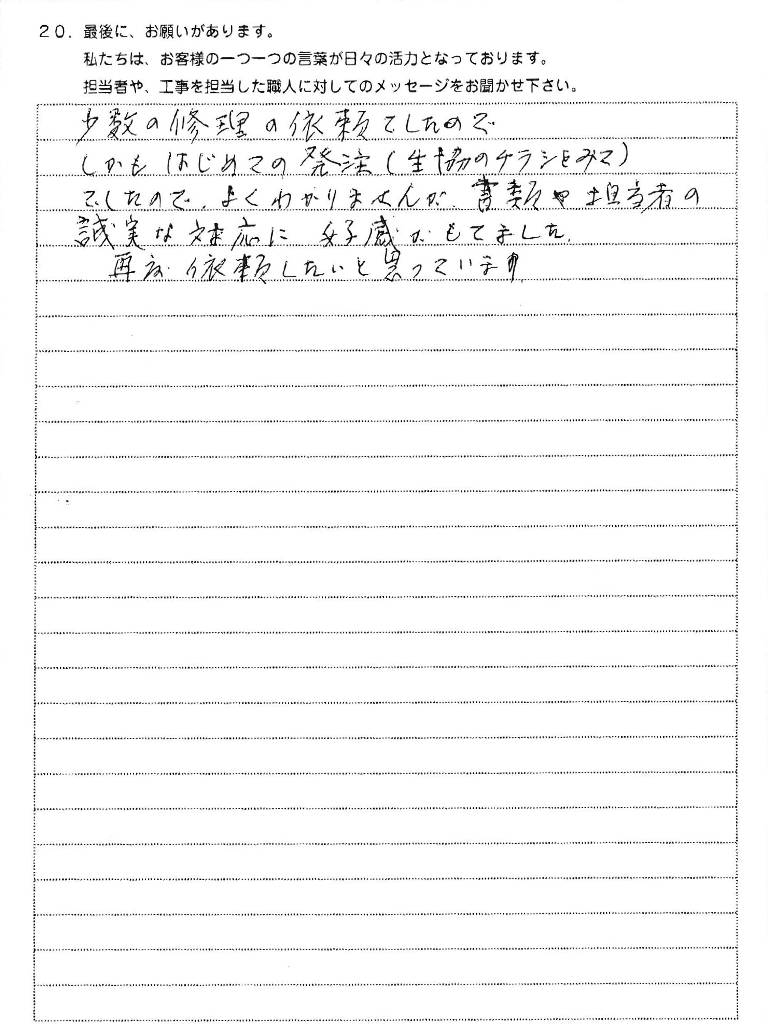 20. 最後に、お願いがあります。
私たちは、お客様の一つ一つの言葉が日々の活力となっております。
担当者や、工事を担当した職人に対してのメッセージをお聞かせ下さい。
少数の修理の依頼でしたので
しかもはじめての発注(生協のチラシをみて)
でしたので、よくわかりませんが、書類や担当者の
誠実な対応に好感がもてました。
再度依頼したいと思っています